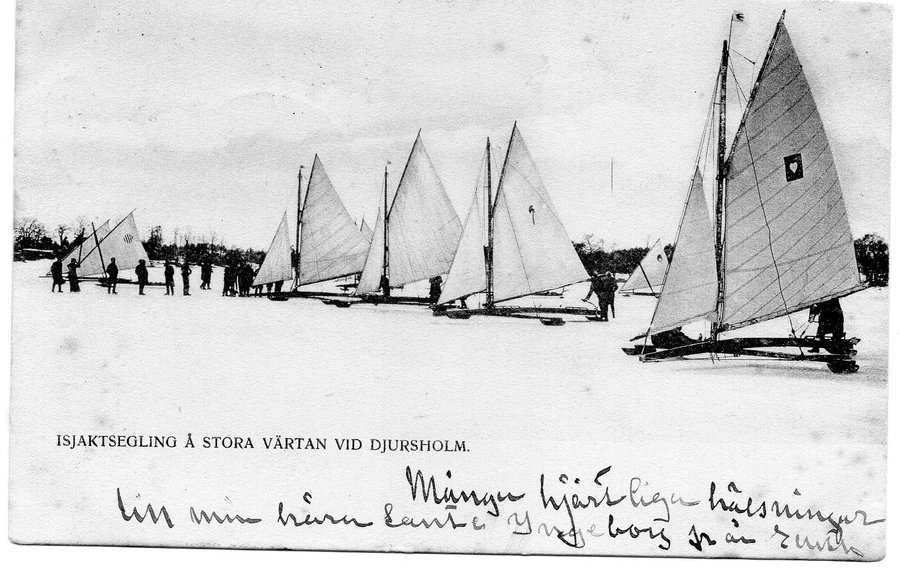 ISJAKTSEGLING Å STORA VÄRTAN VID DJURSHOLM.
Många hjärtliga hälsningar
till min kära tante Yngeborg från